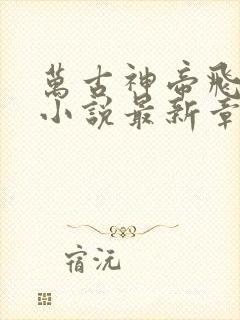 萬古神帝飛
小說最新章
宿沅